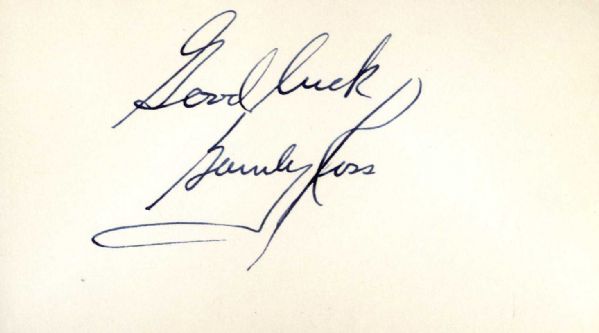 Good luck
Barney Ross